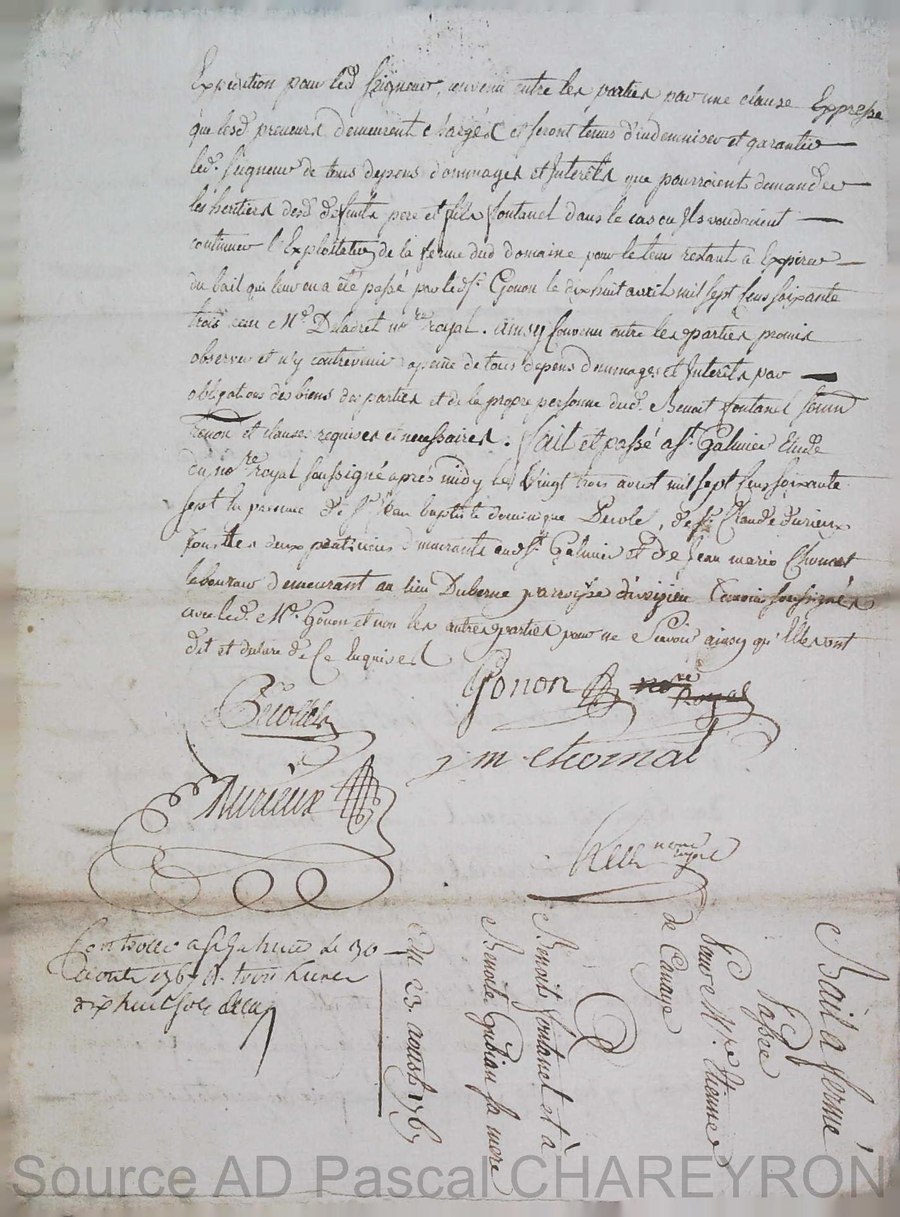 Expedition pour led seigneur, convenu entre les parties par une clause Expresse
que lesd. preneurs demeurent chargés et seront tenus d'indemniser et garantir
led. seigneur de tous depens dommages et Interêts que pourroient demander
les heritiers desd. defunts pere et fils fontanel dans le cas ou Ils voudroient
continuer l'Exploitation de la ferme dud domaine pour le tems restant à Expirer
du bail qui leur en a été passé par led. Sr. Gonon le dix huit avril mil sept Cens soixante
trois, Me. nore royal. ainsy Convenu entre les parties promis
observer et n'y contrevenir a peine de tous depens dommages et Interêts par
obligations des biens des parties et de la propre personne dud. Benoit fontanel
renon et clauses requises et necessaires. fait et passé a St. Galmier Etude
du nore royal soussigné après midy le Vingt trois aoust mil sept Cens soixante
sept En presence de Sr. Jean baptiste dominique Perole, de Sr. Claude durieux
tous les deux praticiens demeurants aud. St. Galmier et de Jean marie Chomat
laboureur demeurant au lieu Duberne parroisse Temoins soussignés
avec led. Me. Gonon et non les autres parties pour ne Scavoir ainsy qu'Elles ont
dit et declaré de Ce Enquises
Gonon nore Royal
Perolle
j m chomat
Durieux
nore royal
Controllé a St Galmier le 30
aout 1767 R. trois livres
dix huit sols
Bail a ferme
Passé
Par Me. Etienne
de Canaye
à
Benoit fontanel et à
Benoite Gubian sa mere
Du 23. aoust 1767
Source AD Pascal CHAREYRON